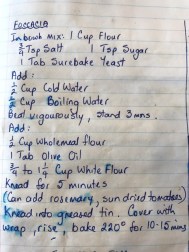 Foccacia
In bowh mix: 1 Cup Flour
3/4 Tsp Salt 1 Tsp Sugar
1 Tab Surebake Yeast
Add:
1/2 Cup Cold Water
1/2 Cup Boiling Water
Beat vigourously, stand 3mns.
Add:
1/2 Cup Wholemeal flour
1 Tab Olive Oil
3/4 to 1 1/4 Cup White Flour
Knead for 5 minutes
(Can add rosemary, sun dried tomatoes)
Knead into greased tin. Cover with
wrap, rise, bake 220° for 10-15 mins